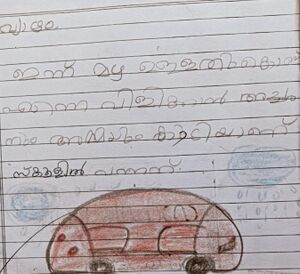 വ്യാഴം
ഇന്ന് മഴ ഉള്ളതിനാൽ
എന്നെ വിളിക്കാൻ അച്ഛ
നും അമ്മയും കൂടിയാണ്
സ്കൂളിൽ വന്നത്